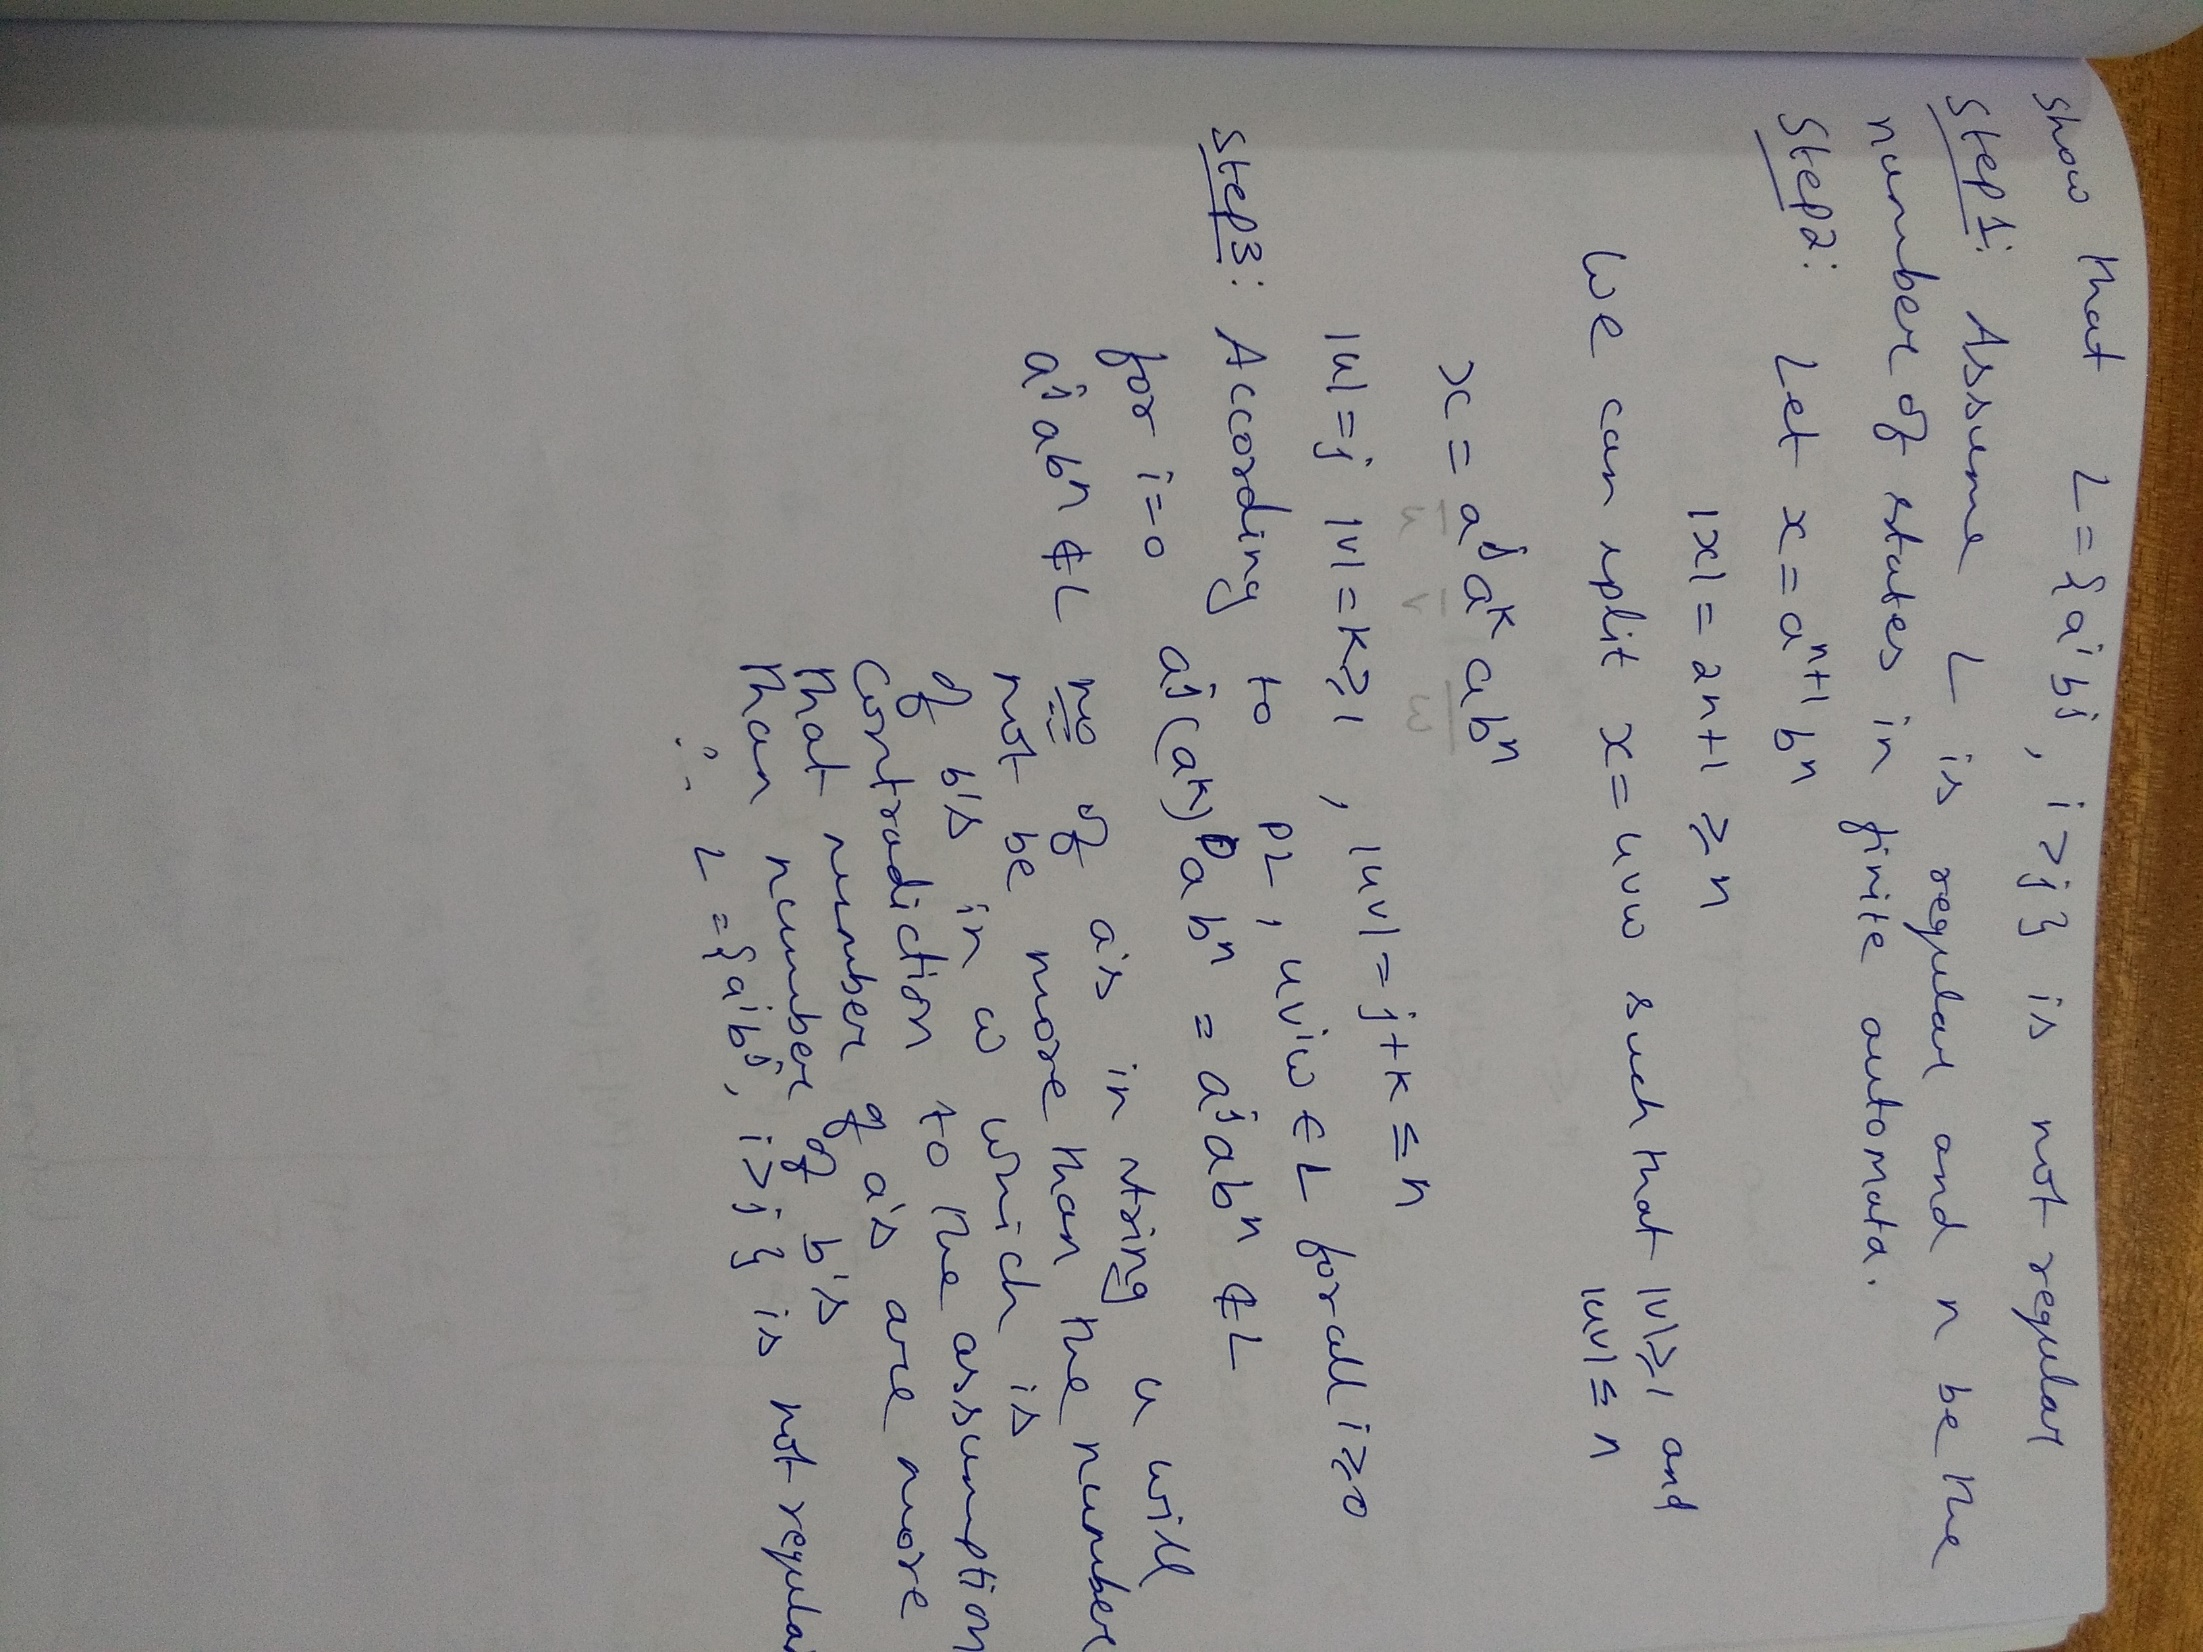 show that L = {aⁱbʲ, i>j} is not regular
Step1: Assume L is regular and n be the
number of states in finite automata.
Step2: Let x = aⁿ⁺¹bⁿ
|x| = 2n+1 ≥ n
We can split x = uvw such that |v|≥1 and
|uv| ≤ n
x = aʲ aᵏ abⁿ
|u|=j |v|=k≥1, |uv| = j+k ≤ n
Step3: According to PL, uvⁱw ∈ L for all i≥0
for i=0 aʲ(aᵏ)⁰abⁿ = aʲabⁿ ∉ L
aʲabⁿ ∉ L no of a's in string u will
not be more than the number
of b's in w which is
contradiction to the assumption
that number of a's are more
than number of b's
∴ L = {aⁱbʲ, i>j} is not regular